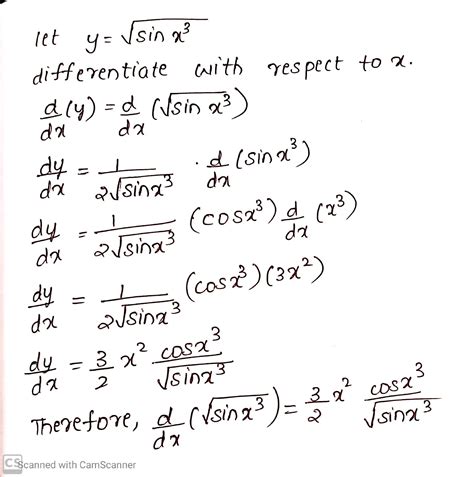 let y = √sin x³
differentiate with respect to x.
d/dx (y) = d/dx (√sin x³)
dy/dx = 1/2√sinx³ · d/dx (sin x³)
dy/dx = 1/2√sinx³ (cosx³) d/dx (x³)
dy/dx = 1/2√sinx³ (cosx³)(3x²)
dy/dx = 3/2 x² cosx³/√sinx³
Therefore, d/dx (√sinx³) = 3/2 x² cosx³/√sinx³
CS Scanned with CamScanner